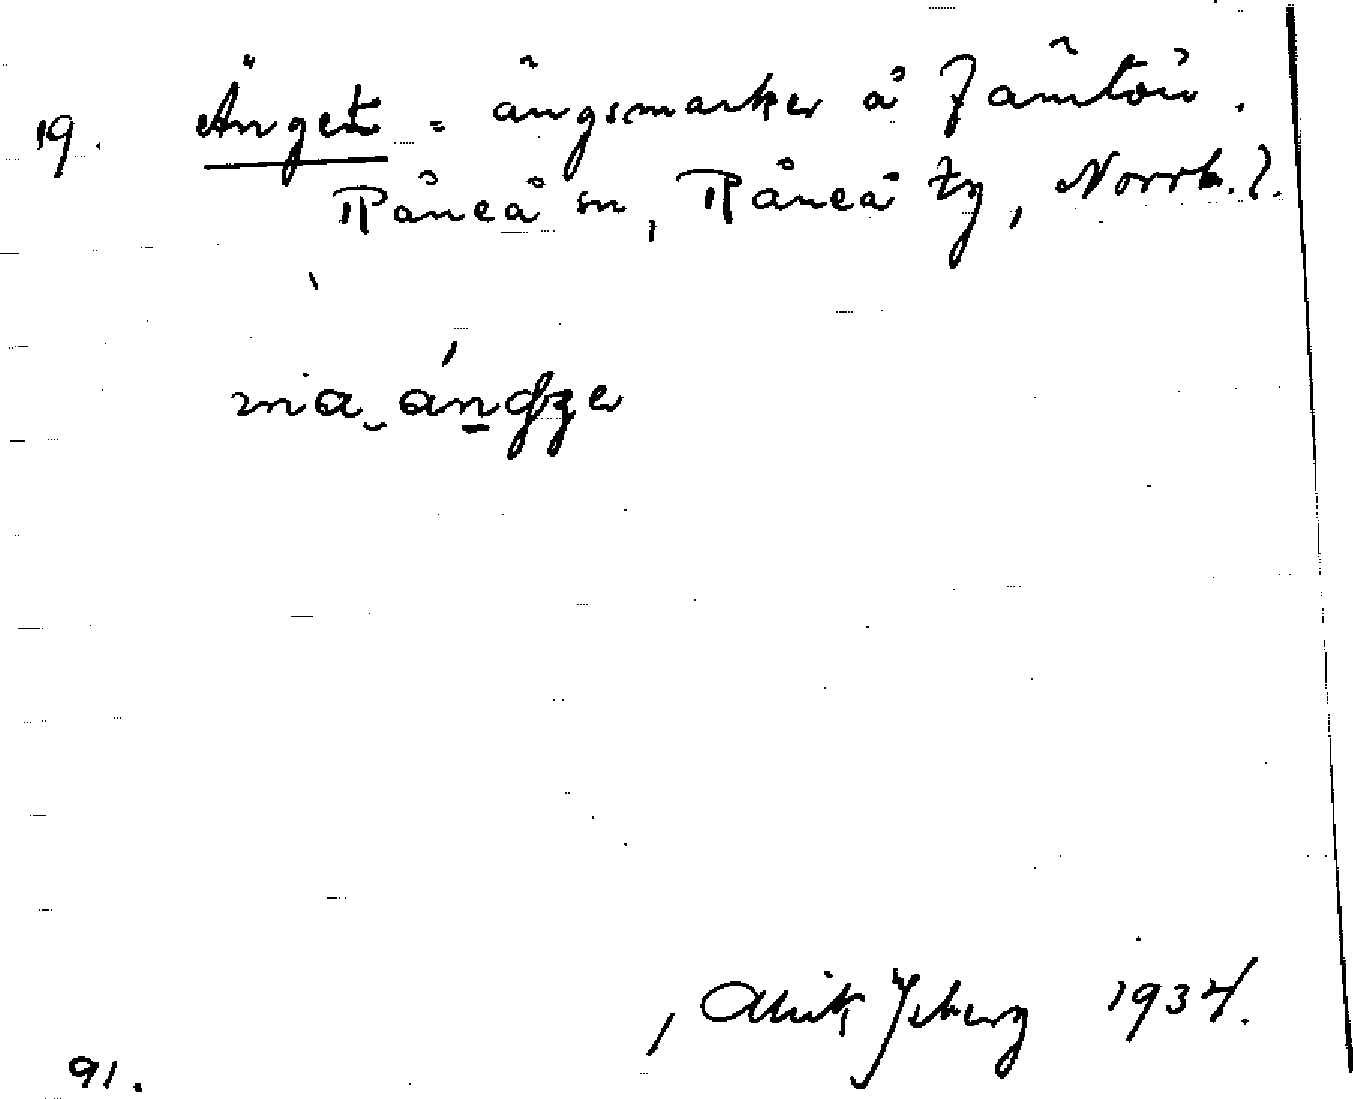 19. Änget = ängsmarker å Jämtön.
Råneå sn, Råneå tg, Norrb. l.
Ulrik Isberg 1934.
91.